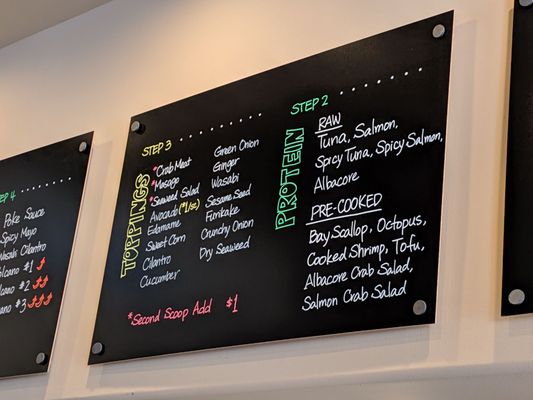 STEP 4
Poke Sauce
Spicy Mayo
Wasabi Cilantro
olcano #1
ano #2
ano #3
STEP 3
TOPPINGS
*Crab Meat
*Masago
*Seaweed Salad
Avocado (*1/sc)
Edamame
Sweet Corn
Cilantro
Cucumber
Green Onion
Ginger
Wasabi
Sesame Seed
Furikake
Crunchy Onion
Dry Seaweed
*Second Scoop Add $1
STEP 2
PROTEIN
RAW
Tuna, Salmon,
Spicy Tuna, Spicy Salmon,
Albacore
PRE-COOKED
Bay Scallop, Octopus,
Cooked Shrimp, Tofu,
Albacore Crab Salad,
Salmon Crab Salad